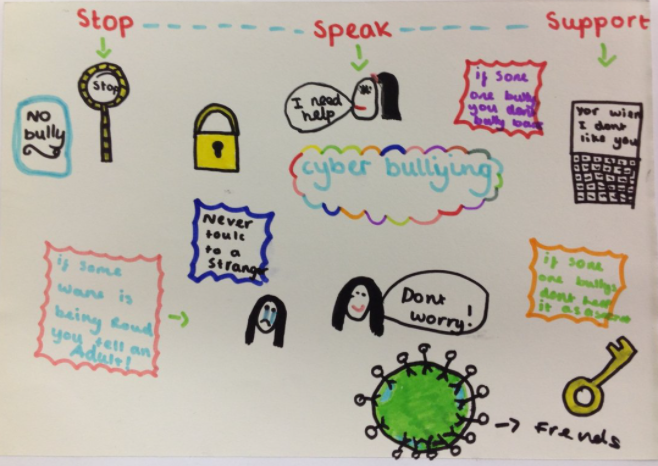 Stop Speak Support
Stop
No
bully
I need
help
if some
one bully
you dont
bully back
yor wierd
I dont
like you
cyber bulliying
Never
toulk
to a
Stranger
if some
wans is
being Roud
you tell an
Adult!
Dont
worry!
if some
one bullys
dont
it as a secret
Frends